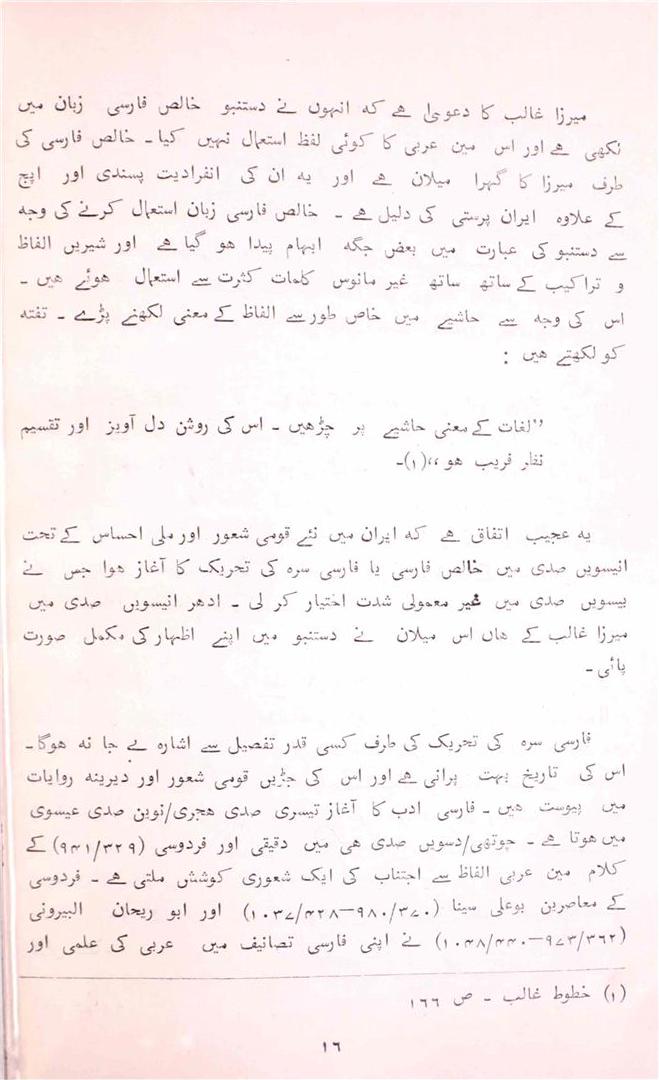 میرزا غالب کا دعویٰ ہے کہ انہوں نے دستنبو خالص فارسی زبان میں
لکھی ہے اور اس مین عربی کا کوئی لفظ استعمال نہیں کیا۔ خالص فارسی کی
طرف میرزا کا گہرا میلان ہے اور یہ ان کی انفرادیت پسندی اور اپج
کے علاوہ ایران پرستی کی دلیل ہے۔ خالص فارسی زبان استعمال کرنے کی وجہ
سے دستنبو کی عبارت میں بعض جگہ ابہام پیدا ہو گیا ہے اور شیریں الفاظ
و تراکیب کے ساتھ ساتھ غیر مانوس کلمات کثرت سے استعمال ہوئے ہیں۔
اس کی وجہ سے حاشیے میں خاص طور سے الفاظ کے معنی لکھنے پڑے۔ تفتہ
کو لکھتے ہیں :
”لغات کے معنی حاشیے پر چڑھیں۔ اس کی روشن دل آویز اور تقسیم
نظر فریب ہو“(۱)۔
یہ عجیب اتفاق ہے کہ ایران میں نئے قومی شعور اور ملی احساس کے تحت
انیسویں صدی میں خالص فارسی یا فارسی سرہ کی تحریک کا آغاز ہوا جس نے
بیسویں صدی میں غیر معمولی شدت اختیار کر لی۔ ادھر انیسویں صدی میں
میرزا غالب کے ہاں اس میلان نے دستنبو میں اپنے اظہار کی مکمل صورت
پائی۔
فارسی سرہ کی تحریک کی طرف کسی قدر تفصیل سے اشارہ بے جا نہ ہوگا۔
اس کی تاریخ بہت پرانی ہے اور اس کی جڑیں قومی شعور اور دیرینہ روایات
میں پیوست ہیں۔ فارسی ادب کا آغاز تیسری صدی ہجری/نوین صدی عیسوی
میں ہوتا ہے۔ چوتھی/دسویں صدی ہی میں دقیقی اور فردوسی (۳۲۹/۹۴۱) کے
کلام مین عربی الفاظ سے اجتناب کی ایک شعوری کوشش ملتی ہے۔ فردوسی
کے معاصرین بوعلی سینا (۳۷۰/۹۸۰—۴۲۸/۱۰۳۷) اور ابو ریحان البیرونی
(۳۶۲/۹۷۳—۴۴۰/۱۰۴۸) نے اپنی فارسی تصانیف میں عربی کی علمی اور
(۱) خطوط غالب۔ ص ۱۶۶
۱۶